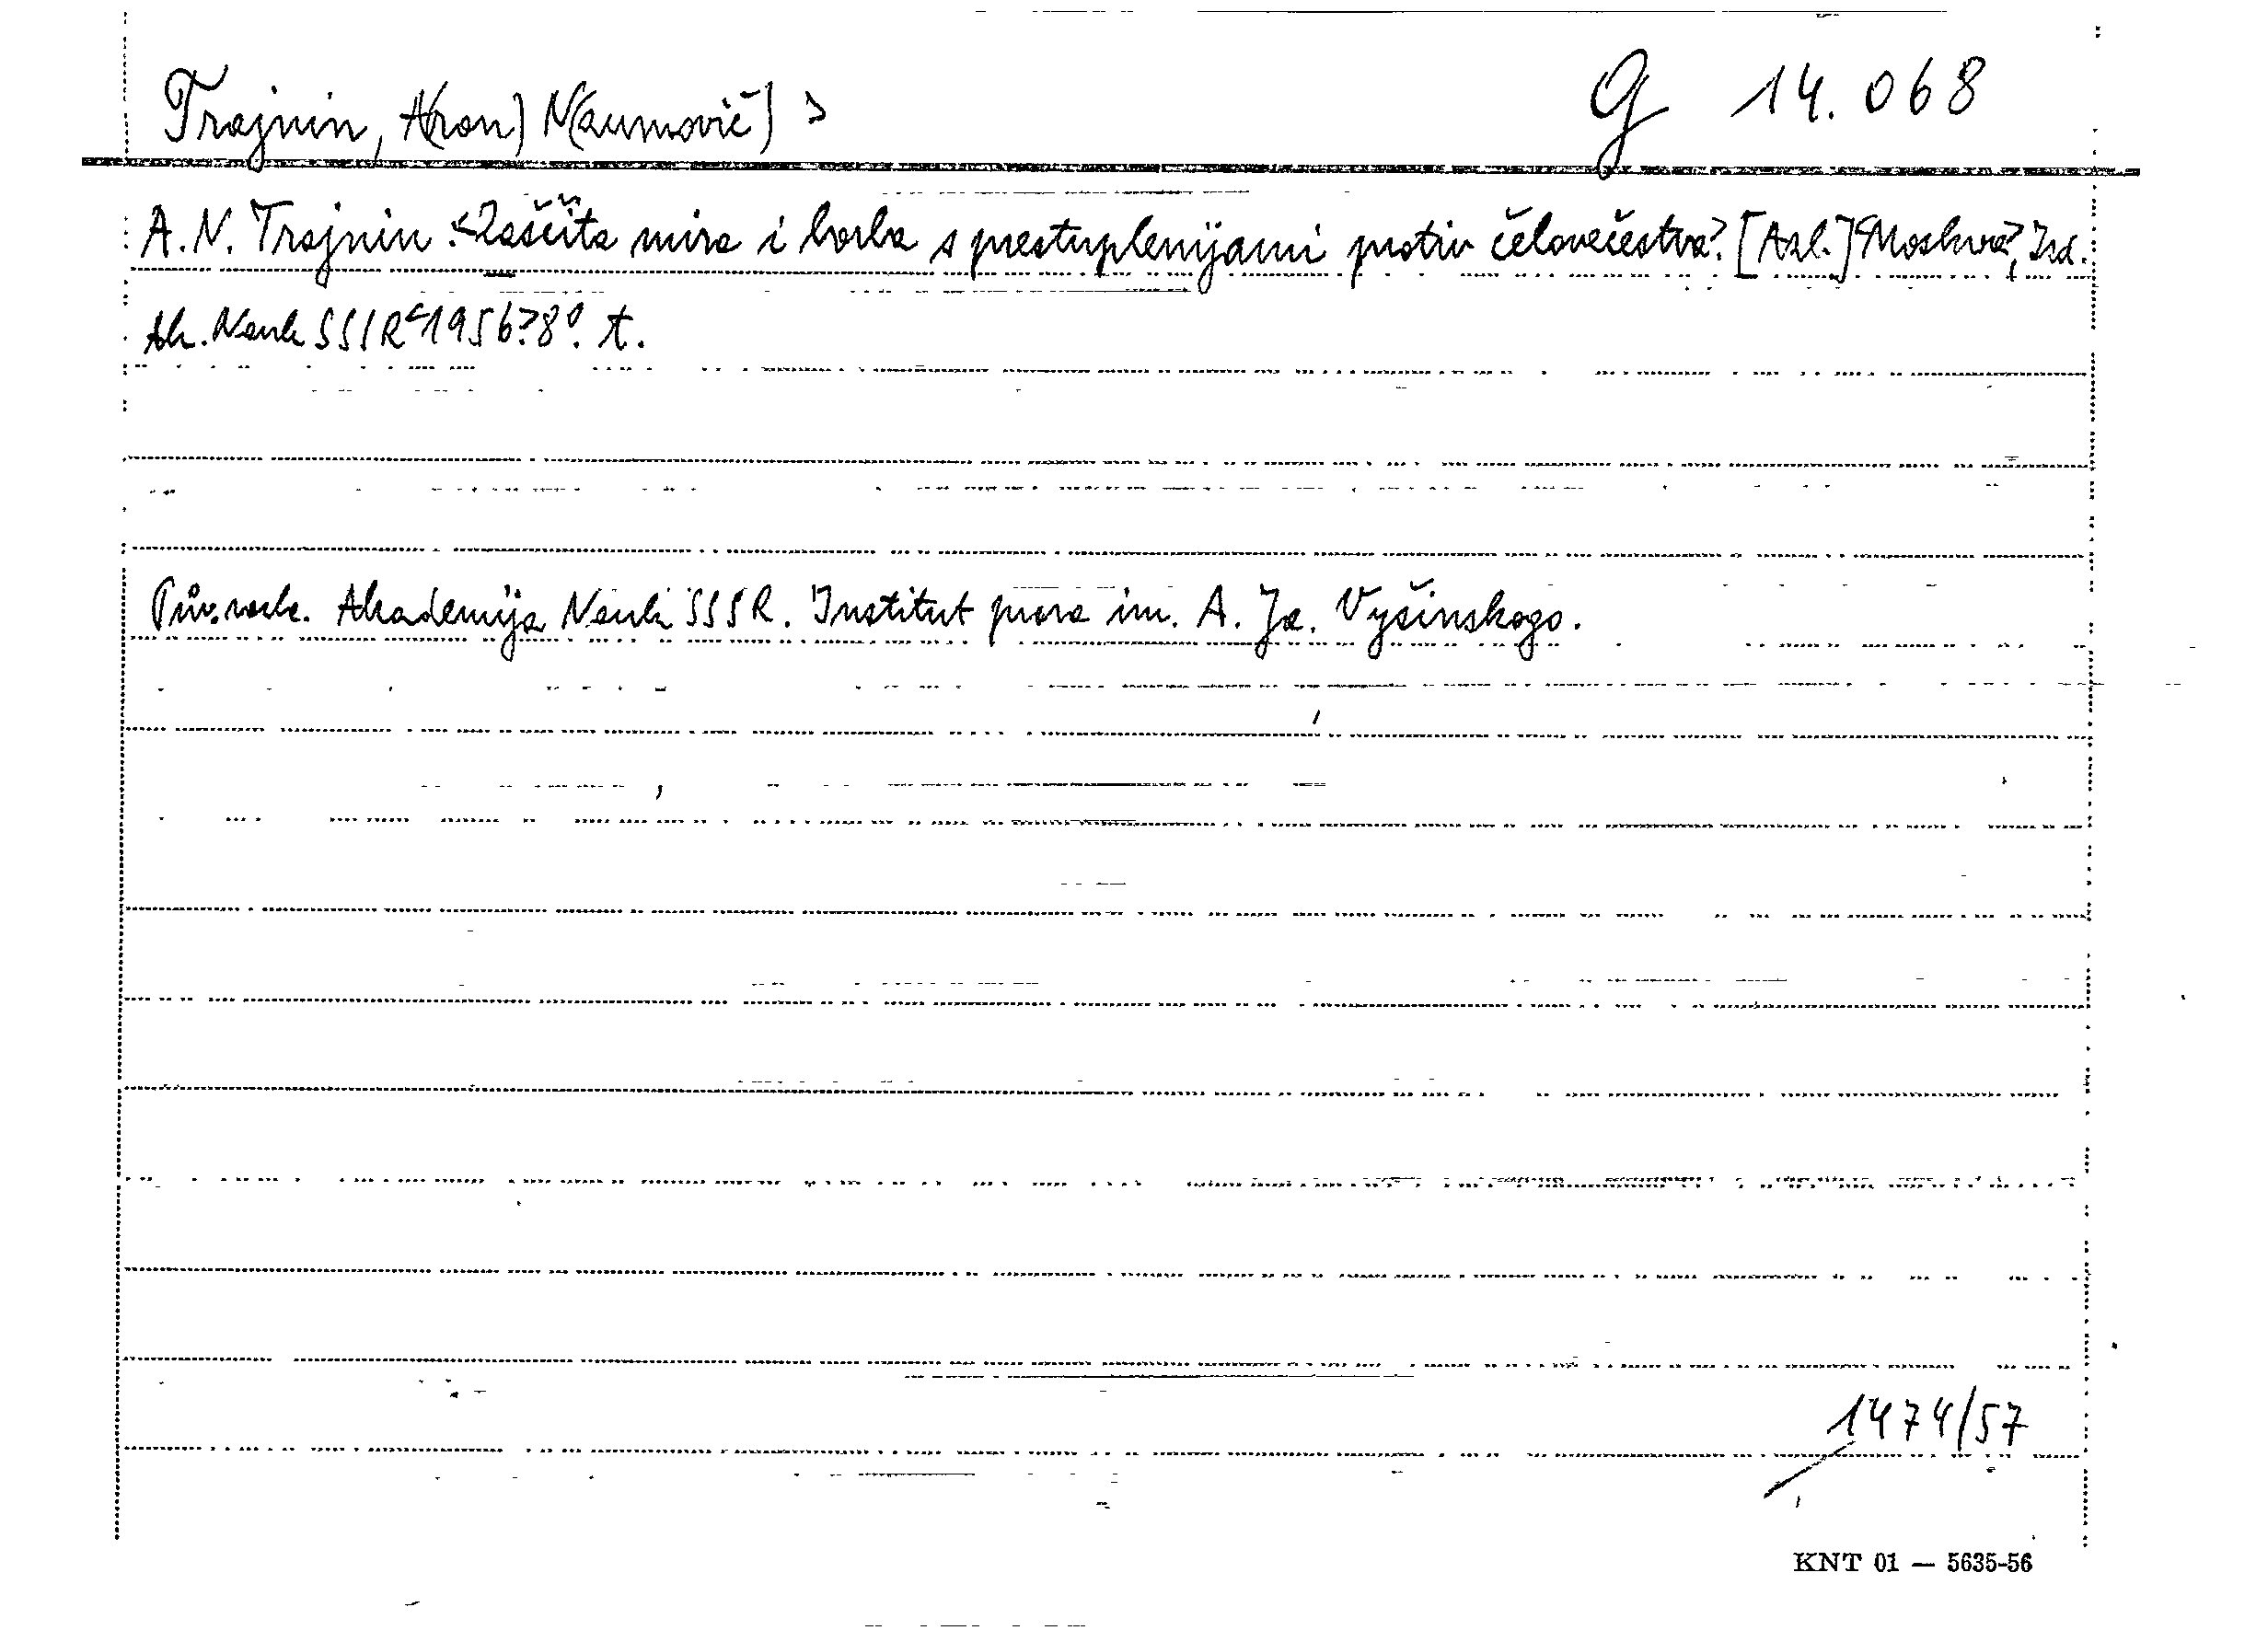 Trajnin, A(ron) N(aumovič) >
G 14.068
A. N. Trajnin: <Zaščita mira i borba s prestuplenijami protiv čelovečestva>. [Azl.] <Moskva>, Izd.
Ak. Nauk SSSR <1956>. 8°. t.
Pův. rusk. Akademija Nauk SSSR. Institut prava im. A. Ja. Vyšinskogo.
1474/57
KNT 01 — 5635-56